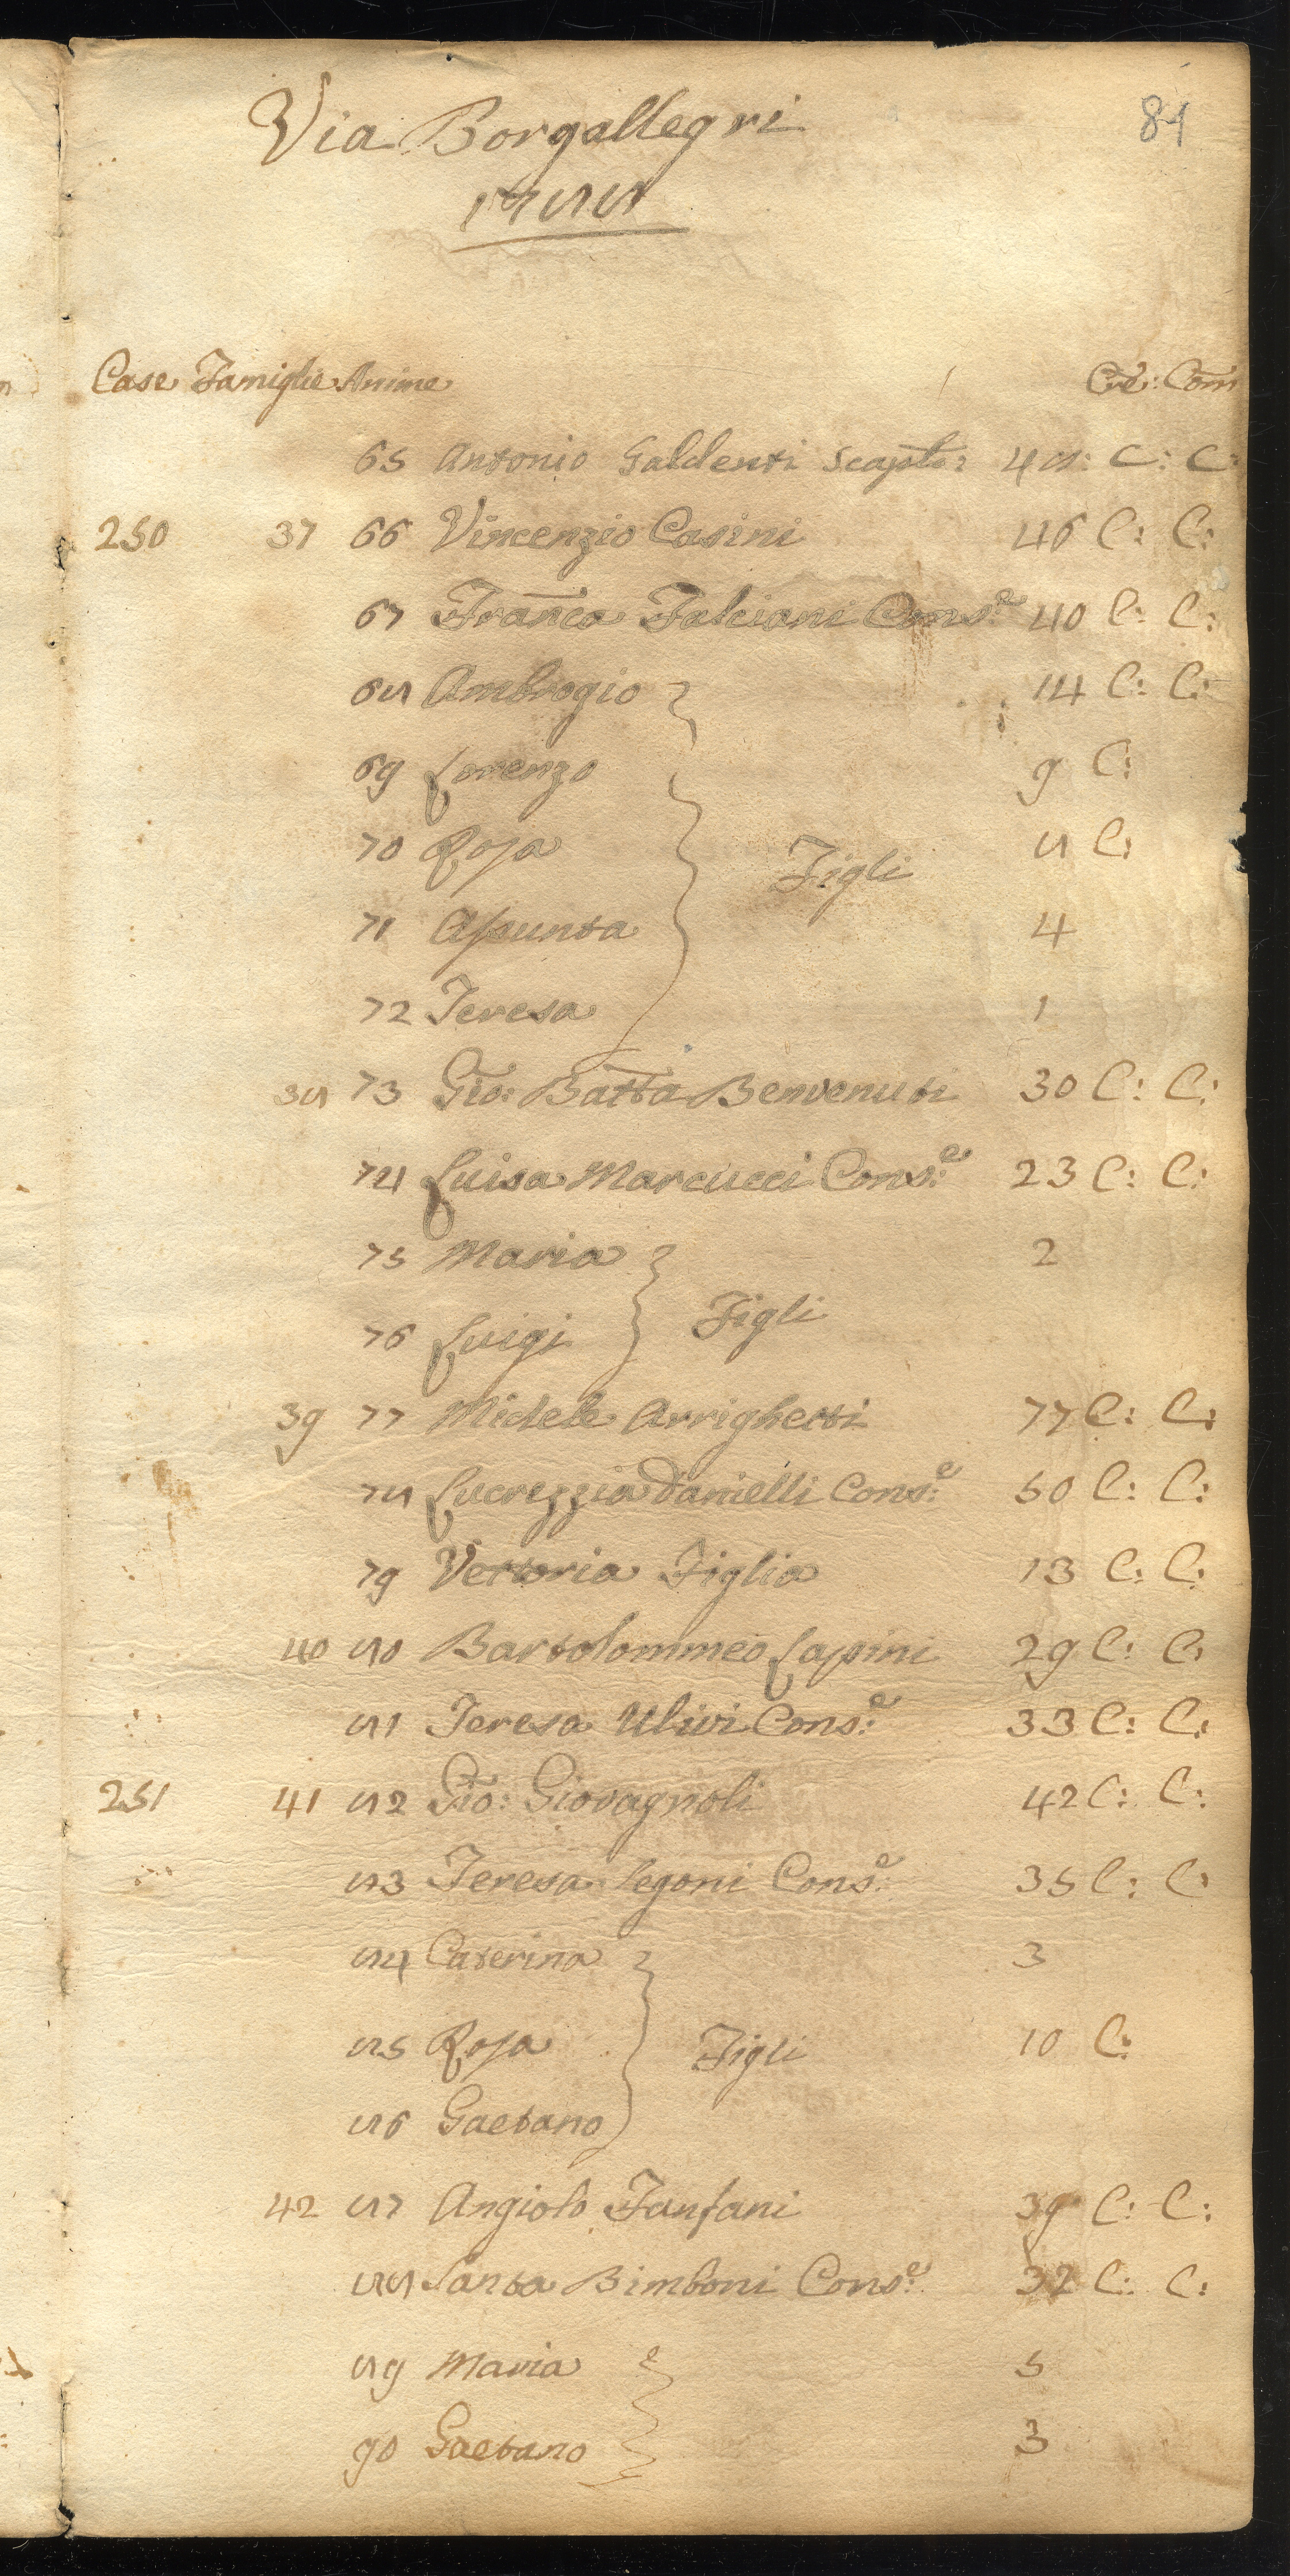 84
Via Borgallegri
1788
Case Famiglie Anime Cre: Com
65 Antonio Galdenti Scapolo: 48: C: C:
250 37 66 Vincenzio Casini 46 C: C:
67 Franca Falciani Cons.e 40 C: C:
68 Ambrogio 14 C: C:
69 Lorenzo 9 C:
70 Rosa 8 C:
Figli
71 Assunta 4
72 Teresa 1
38 73 Gio: Batta Benvenuti 30 C: C:
74 Luisa Marcucci Cons.e 23 C: C:
75 Maria 2
Figli
76 Luigi
39 77 Michele Arrighetti 77 C: C:
78 Lucrezzia Danielli Cons.e 50 C: C:
79 Vettoria Figlia 13 C: C:
40 80 Bartolommeo Lapini 29 C: C:
81 Teresa Ulivi Cons.e 33 C: C:
251 41 82 Gio: Giovagnoli 42 C: C:
83 Teresa Legoni Cons.e 35 C: C:
84 Caterina 3
85 Rosa Figli 10 C:
86 Gaetano
42 87 Angiolo Fanfani 39 C: C:
88 Santa Bimboni Cons.e 32 C: C:
89 Maria 5
90 Gaetano 3